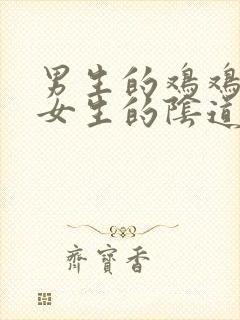 男生的鸡鸡
女生的陰道
齊寶香